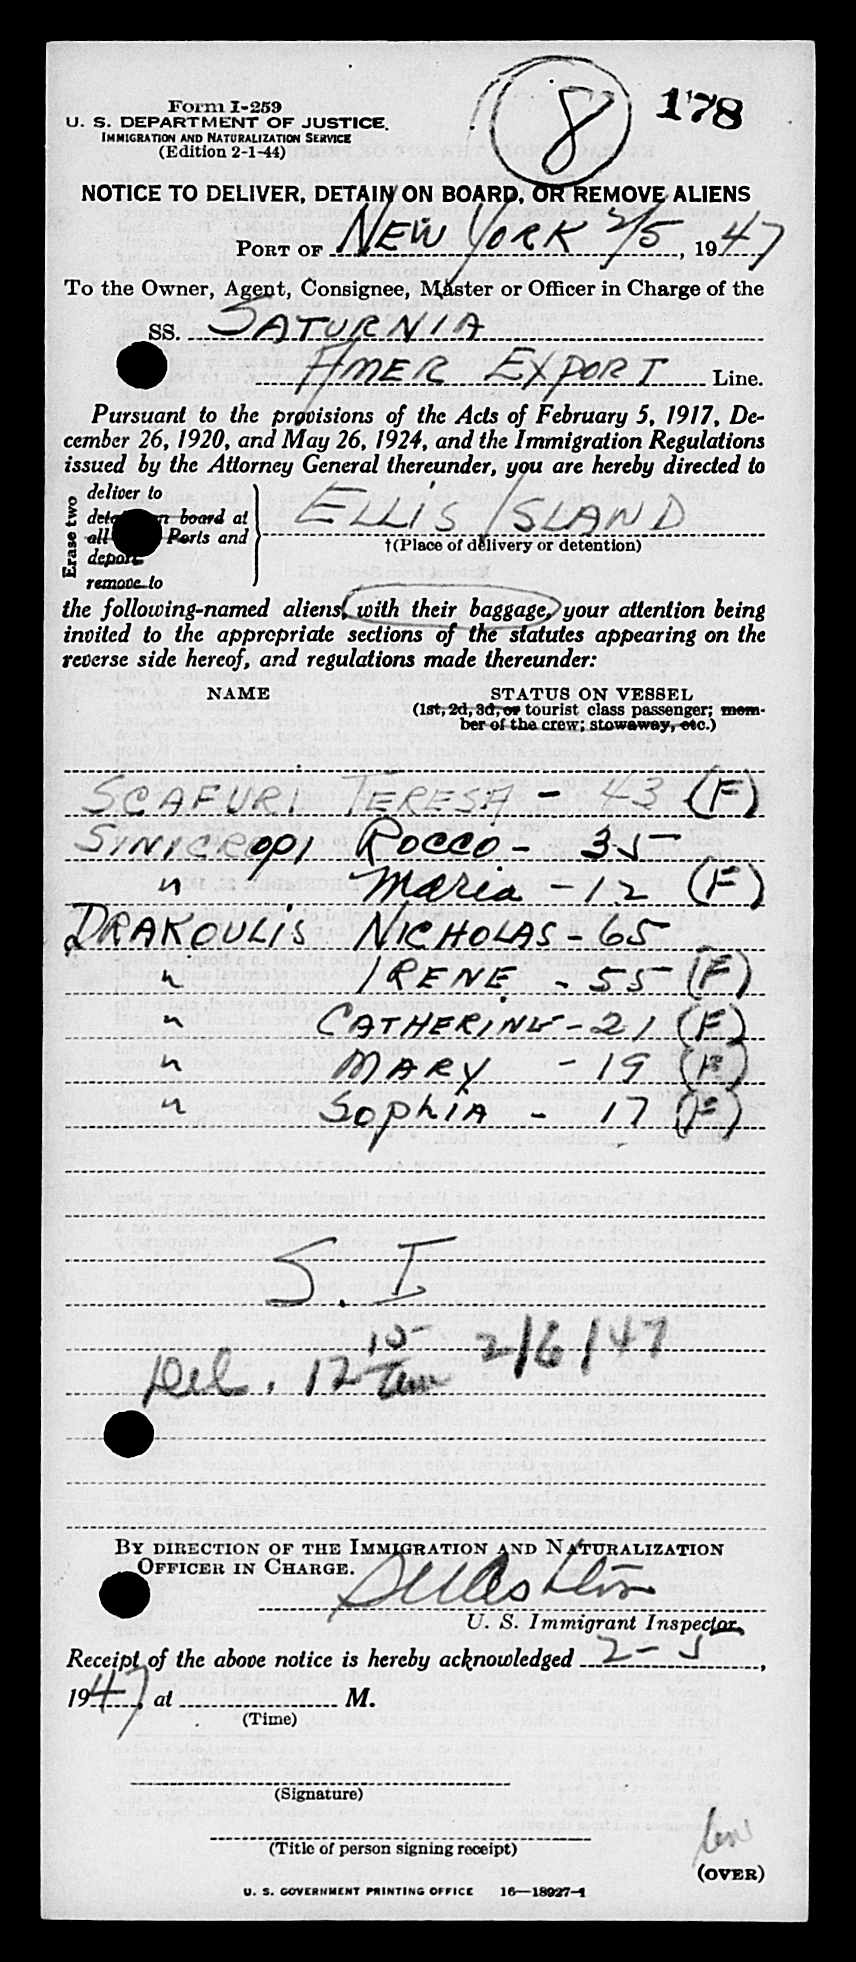 8 178
Form I-259
U. S. DEPARTMENT OF JUSTICE.
IMMIGRATION AND NATURALIZATION SERVICE
(Edition 2-1-44)
NOTICE TO DELIVER, DETAIN ON BOARD, OR REMOVE ALIENS
PORT OF NEW YORK 2/5, 1947
To the Owner, Agent, Consignee, Master or Officer in Charge of the
SS. SATURNIA
AMER EXPORT Line.
Pursuant to the provisions of the Acts of February 5, 1917, De-
cember 26, 1920, and May 26, 1924, and the Immigration Regulations
issued by the Attorney General thereunder, you are hereby directed to
Erase two
deliver to
board at
all Ports and
deport
remove to
ELLIS ISLAND
†(Place of delivery or detention)
the following-named aliens, with their baggage, your attention being
invited to the appropriate sections of the statutes appearing on the
reverse side hereof, and regulations made thereunder:
NAME STATUS ON VESSEL
(1st, 2d, 3d, or tourist class passenger; mem-
ber of the crew; stowaway, etc.)
SCAFURI TERESA - 43 (F)
SINICROPI ROCCO - 35
" Maria - 12 (F)
DRAKOULIS NICHOLAS - 65
" IRENE - 55 (F)
" CATHERINE - 21 (F)
" MARY - 19 (F)
" SOPHIA - 17 (F)
S. I
Del. 12 15 2/6/47
BY DIRECTION OF THE IMMIGRATION AND NATURALIZATION
OFFICER IN CHARGE.
U. S. Immigrant Inspector.
Receipt of the above notice is hereby acknowledged 2-5,
1947, at M.
(Time)
(Signature)
(Title of person signing receipt)
(OVER)
U. S. GOVERNMENT PRINTING OFFICE 16—18927-1